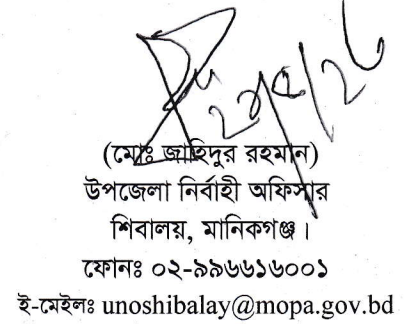 (মোঃ জাহিদুর রহমান)
উপজেলা নির্বাহী অফিসার
শিবালয়, মানিকগঞ্জ।
ফোনঃ ০২-৯৯৬৬১৬০০১
ই-মেইলঃ unoshibalay@mopa.gov.bd